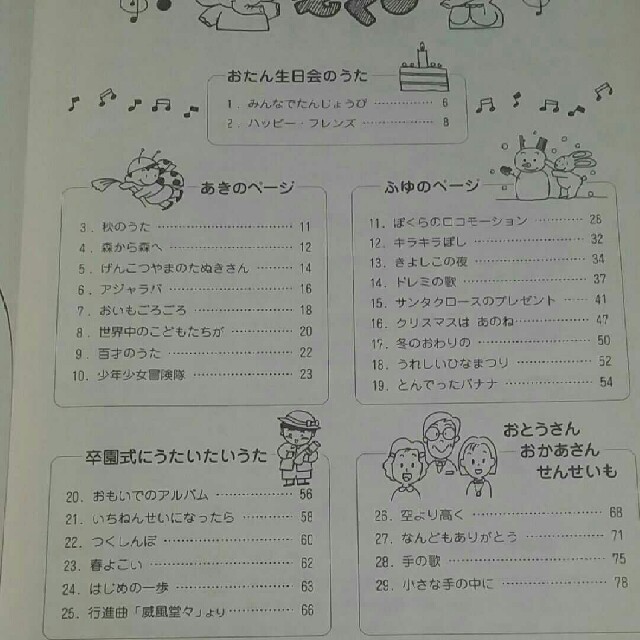 おたん生日会のうた
1. みんなでたんじょうび …… 6
2. ハッピー・フレンズ …… 8
あきのページ
3. 秋のうた …… 11
4. 森から森へ …… 12
5. げんこつやまのたぬきさん …… 14
6. アジャラパ …… 16
7. おいもごろごろ …… 18
8. 世界中のこどもたちが …… 20
9. 百才のうた …… 22
10. 少年少女冒険隊 …… 23
ふゆのページ
11. ぼくらのロコモーション …… 26
12. キラキラぼし …… 32
13. きよしこの夜 …… 34
14. ドレミの歌 …… 37
15. サンタクロースのプレゼント …… 41
16. クリスマスは あのね …… 47
17. 冬のおわりの …… 50
18. うれしいひなまつり …… 52
19. とんでったバナナ …… 54
卒園式にうたいたいうた
20. おもいでのアルバム …… 56
21. いちねんせいになったら …… 58
22. つくしんぼ …… 60
23. 春よこい …… 62
24. はじめの一歩 …… 63
25. 行進曲「威風堂々」より …… 66
おとうさん
おかあさん
せんせいも
26. 空より高く …… 68
27. なんどもありがとう …… 71
28. 手の歌 …… 75
29. 小さな手の中に …… 78